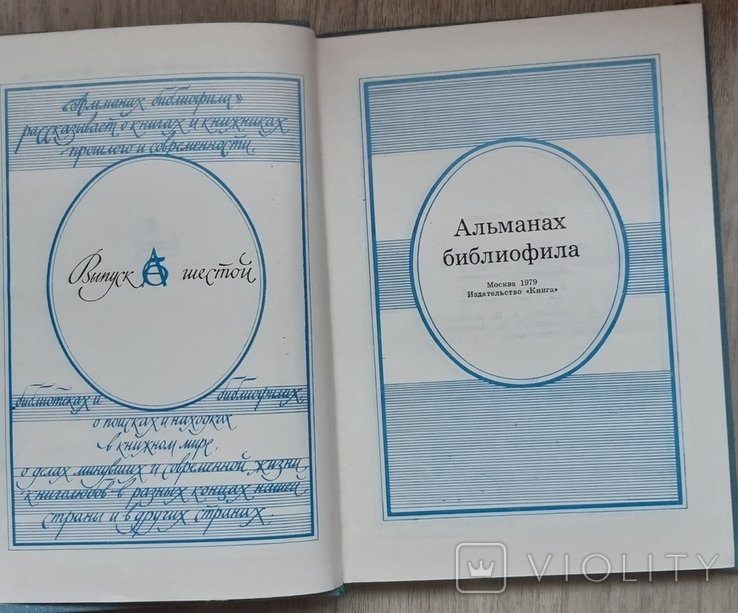 «Альманах библиофила»
рассказывает о книгах и книжниках
прошлого и современности,
Выпуск АБ шестой
библиотеках и библиофилах,
о поисках и находках
в книжном мире,
о делах минувших и современной жизни
книголюбов в разных концах нашей
страны и в других странах.
Альманах
библиофила
Москва 1979
Издательство «Книга»
VIOLITY